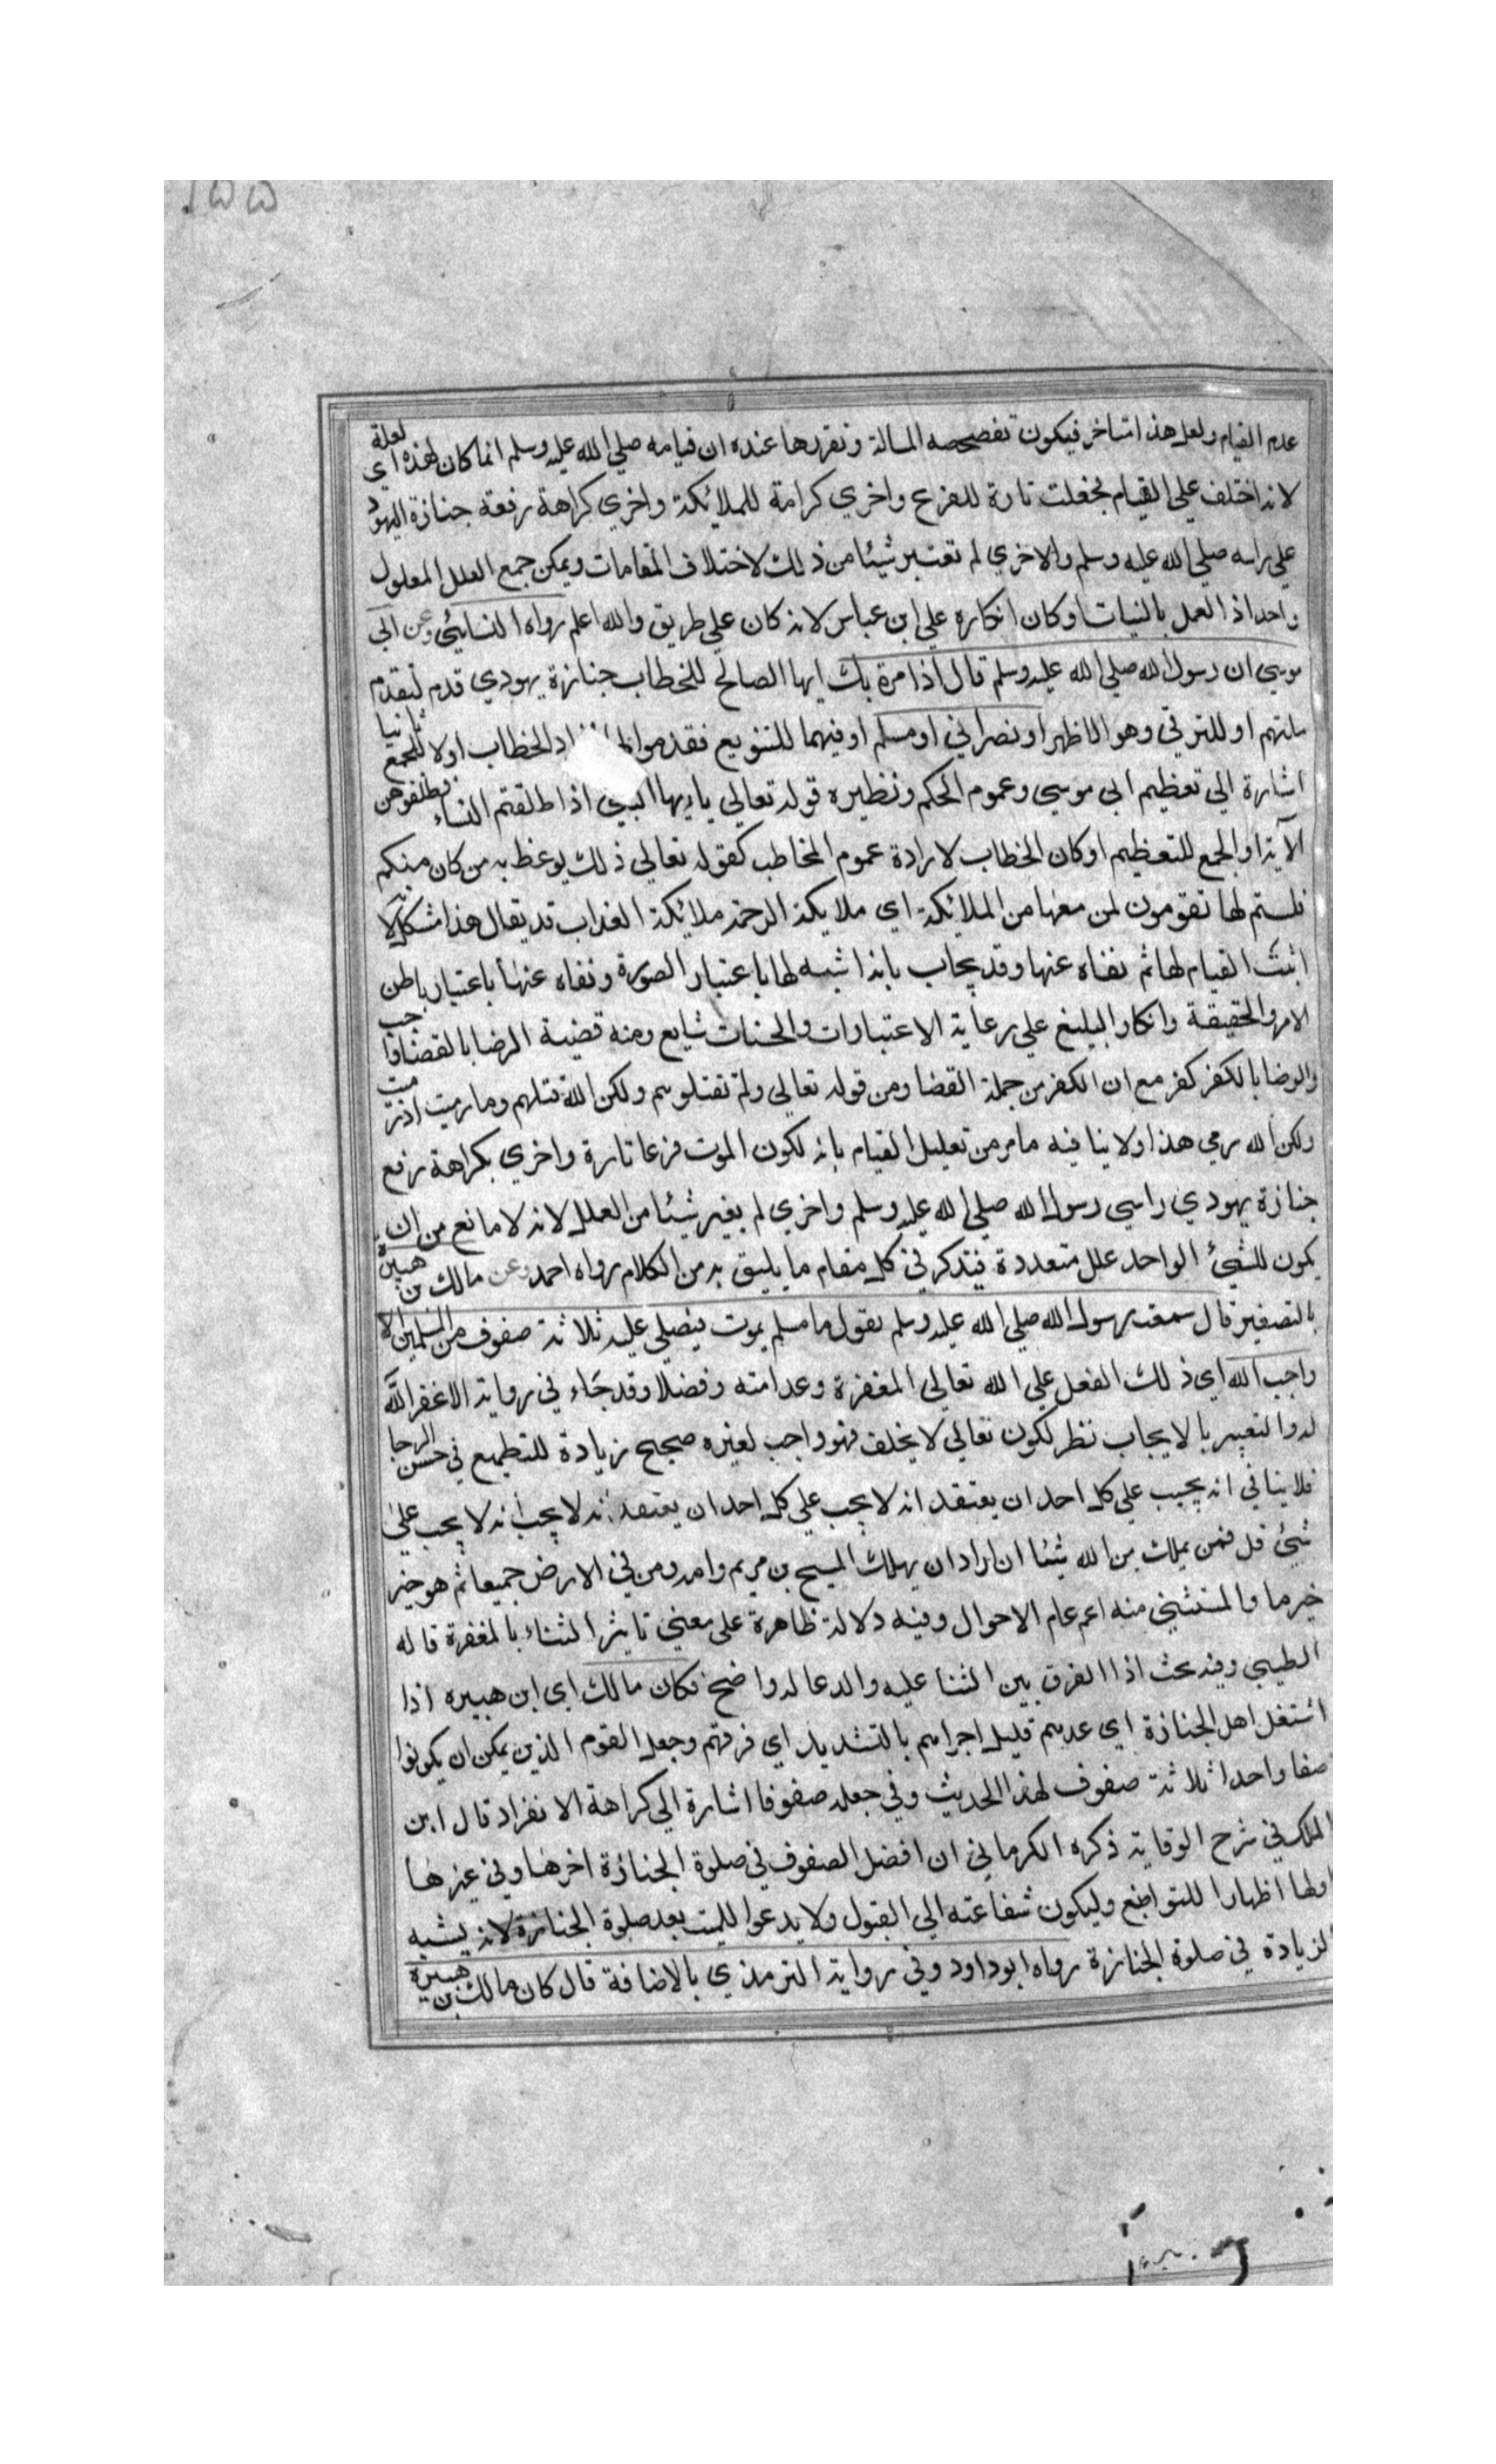 ١٥٥
عدم القيام ولعل هذا متاخر فيكون تفصحصه المسالة وتقررها عنده ان قيامه صلي الله عليه وسلم انما كان لهذه لعلة اي
لانه اختلف علي القيام فجعلت تارة للفزع واخري كرامة للملائكة واخري كراهة رفعة جنازة اليهود
علي راسه صلي الله عليه وسلم والاخري لم تعتبر شيئا من ذلك لاختلاف المقامات ويمكن جمع العلل المعلول
واحد اذ العمل بالنيات او كان انكاره علي ابن عباس لانه كان علي طريق والله اعلم رواه النسائي وعن ابي
موسي ان رسول الله صلي الله عليه وسلم قال اذا مرة بك ايها الصالح للخطاب جنازة يهودي قدم لتقدم
ملتهم او للترقي وهو الاظهر او نصراني او مسلم او فيهما للتنويع فقدموا الخطاب اولا للجمع ثانيا
اشارة الي تعظيم ابي موسي وعموم الحكم ونظيره قوله تعالي يايها النبي اذا طلقتم النساء فطلقوهن
الآية او الجمع للتعظيم او كان الخطاب لارادة عموم المخاطب كقوله تعالي ذلك يوعظ به من كان منكم
فلستم لها تقومون لمن معها من الملائكة اي ملايكة الرحمة ملائكة العذاب قد يقال هذا مشكل لانه
اثبت القيام لها ثم نفاه عنها وقد يجاب بانه اثبته لها باعتبار الصورة ونفاه عنها باعتبار باطن
الامر والحقيقة وانكار البليغ علي رعاية الاعتبارات والحنات شايع ومنه قضية الرضا بالقضا واجب
والرضا بالكفر كفر مع ان الكفر من جملة القضا ومن قوله تعالي ولم تقتلوهم ولكن الله قتلهم وما رميت اذ رميت
ولكن الله رمي هذا ولا ينافيه ما مر من تعليل القيام بانه لكون الموت فزعا تارة واخري بكراهة رفع
جنازة يهودي راسي رسول الله صلي الله عليه وسلم واخري لم يغير شيئا من العلل لانه لا مانع من ان
يكون للشيء الواحد علل متعددة فيتذكر في كل مقام ما يليق به من الكلام رواه احمد وعن مالك بن هبيرة
بالتصغير قال سمعت رسول الله صلي الله عليه وسلم يقول ما مسلم يموت فيصلي عليه ثلاثة صفوف من المسلمين الا
واجب الله اي ذلك الفعل علي الله تعالي المغفرة وعدا منه وفضلا وقد جاء في رواية الا غفر الله
له والتعبير بالايجاب نظر لكون تعالي لا يخلف فهو واجب لغيره صحيح زيادة للتطميع في حسن الرجا
فلا ينافي انه يجيب علي كل احد ان يعتقد انه لا يجب علي كل احد ان يعتقد انه لا يجب انه لا يجب علي
شيئ قل فمن يملك من الله شئا ان اراد ان يهلك المسيح بن مريم وامه ومن في الارض جميعا ثم هو خبر
خبر ما والمستثني منه اعم عام الاحوال وفيه دلالة ظاهرة علي معني تاثير الثناء بالمغفرة قاله
الطيبي وفيه بحث اذا الفرق بين الثنا عليه والدعا له واضح فكان مالك اي ابن هبيره اذا
اشتغل اهل الجنازة اي عدهم قليلا جراهم بالتشديد اي فرقهم وجعل القوم الذين يمكن ان يكونوا
صفا واحدا ثلاثة صفوف لهذا الحديث وفي جعله صفوفا اشارة الي كراهة الانفراد قال ابن
الملك في شرح الوقاية ذكره الكرماني ان افضل الصفوف في صلوة الجنازة اخرها وفي غيرها
اولها اظهارا للتواضع وليكون شفاعته الي القبول ولا يدعوا للميت بعد صلوة الجنازة لانه يشبه
الزيادة في صلوة الجنازة رواه ابو داود وفي رواية الترمذي بالاضافة قال كان مالك بن هبيرة